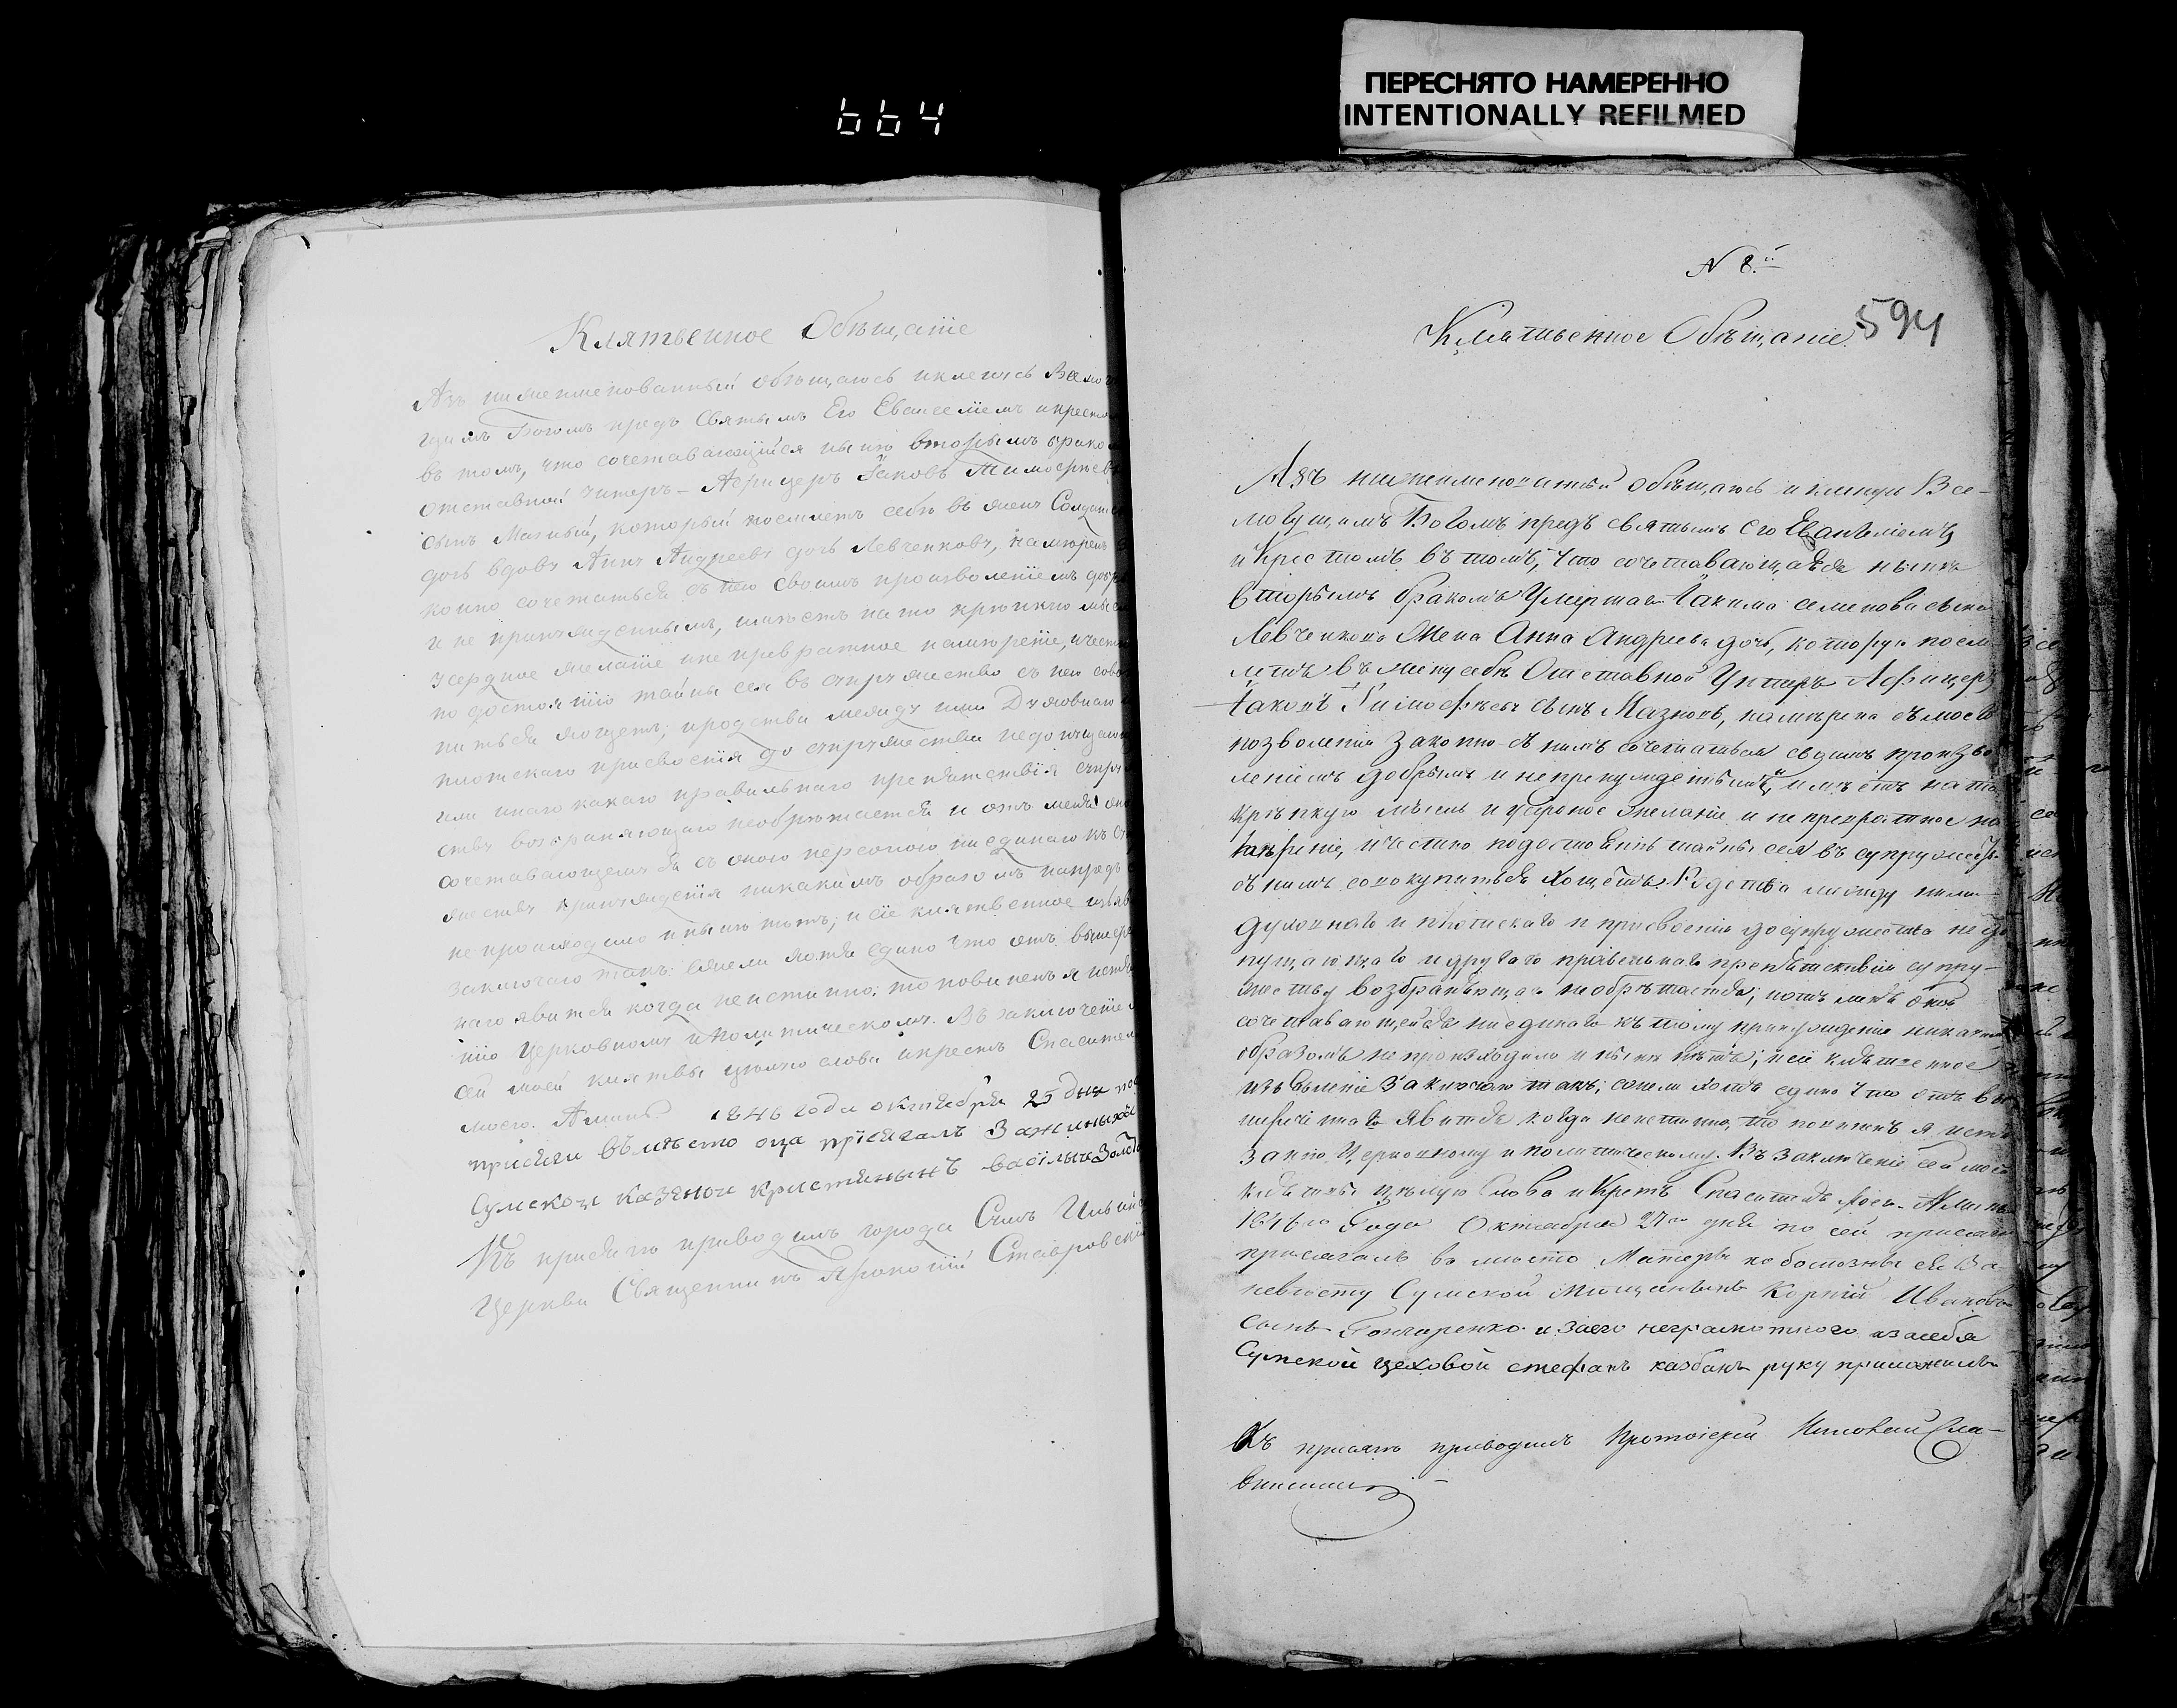 664
ПЕРЕСНЯТО НАМЕРЕННО
INTENTIONALLY REFILMED
Клятвенное Обѣщаніе
Азъ нижеименованный обѣщаюсь и кленусь Всемогу
щимъ Богомъ предъ Святымъ Его Евангеліемъ и крестомъ
въ томъ, что сочетавающійся нынѣ вторымъ брако
отставной Унтеръ-Афицеръ Іаковъ Тимофеевъ
сынъ Мазный, который поемлетъ себѣ въ жену Солдат
дочь вдову Анну Андрееву дочь Левченкову, намѣренъ
конно сочетаться съ нею своимъ произволеніемъ добр
и не принужденнымъ, имѣетъ на то крѣпкую мы
усердное желаніе и не превратное намѣреніе, и честн
по достоянію тайны сея въ супружество съ нею сово
питься хощетъ; родства между ими Духовнаго
плотскаго присвоенія до супружества недопущаю
или инаго какаго правильнаго препятствія супру
ству возбраняющаго необрѣтается и отъ мене
сочетавающемуся съ оною персоною ни единаго къ су
жеству принужденія никакимъ образомъ напредь
не происходило и нынѣ нѣтъ; и сіе клятвенное изъяв
заключаю такъ: ежели хотя едино что отъ вышере
наго явится когда неистинно; то повиненъ я истяза
нію Церковному и политическому. Въ заключеніе
сей моей клятвы цѣлую слова и крестъ Спасителя
моего. Аминь 1846 года октября 25 дня по
присяги въмѣсто оца присягалъ
Сумской казеной крестянинъ василь
Къ присягѣ приводилъ города Сумъ Ильин
Церкви Священникъ Прокопій Ставровскій
N 8й
594
Клятвенное Обѣщаніе
Азъ нижеименованный обѣщаюсь и кленусь Все-
могущимъ Богомъ предъ святымъ Его Евангеліемъ
и Крестомъ въ томъ, что сочетавающаяся нынѣ
вторымъ бракомъ Умершаго Іакима Семенова сына
Левченкова Жена Анна Андреева дочь, которую поем-
летъ въ жену себѣ Отставной Унтеръ Афицеръ
Іаковъ Тимофѣевъ сынъ Мазновъ, намѣрена съ моего
позволенія законно съ нимъ сочетаться своимъ произво
леніемъ добрымъ и непринужденнымъ, и имѣетъ на то
крѣпкую мысль и усердное желаніе и не превратное на
мѣреніе, и честно по достоянію тайны сея въ супружест
съ нимъ совокупиться хощетъ. Родства между ними
духовнаго и плотскаго и присвоенія до супружества недо
пущающаго и другаго правильнаго препятствія супру-
жеству возбраняющаго необрѣтается; и отъ мене оной
сочетавающейся ни единаго къ тому принужденія никакимъ
образомъ не происходило и нынѣ нѣтъ; и сіе клятвенное
изъявленіе заключаю такъ; ежели хотя едино что отъ вы
шереченнаго явится когда неистинно, то повиненъ я истя
занію Церковному и политическому. Въ заключеніе сей моей
клятвы цѣлую Слова и Крестъ Спасителя моего. Аминь
1846го Года Октября 27го дня по сей присягѣ
присягалъ въ мѣсто Матери по болезнѣ ея За
невѣсту Сумской мѣщанинъ Корній Ивановъ
сынъ Гончаренко а заего неграмотного и за себя
Сумской цеховой стефанъ казбанъ руку приложилъ
Къ присягѣ приводилъ Протоіерей Николай Сла-